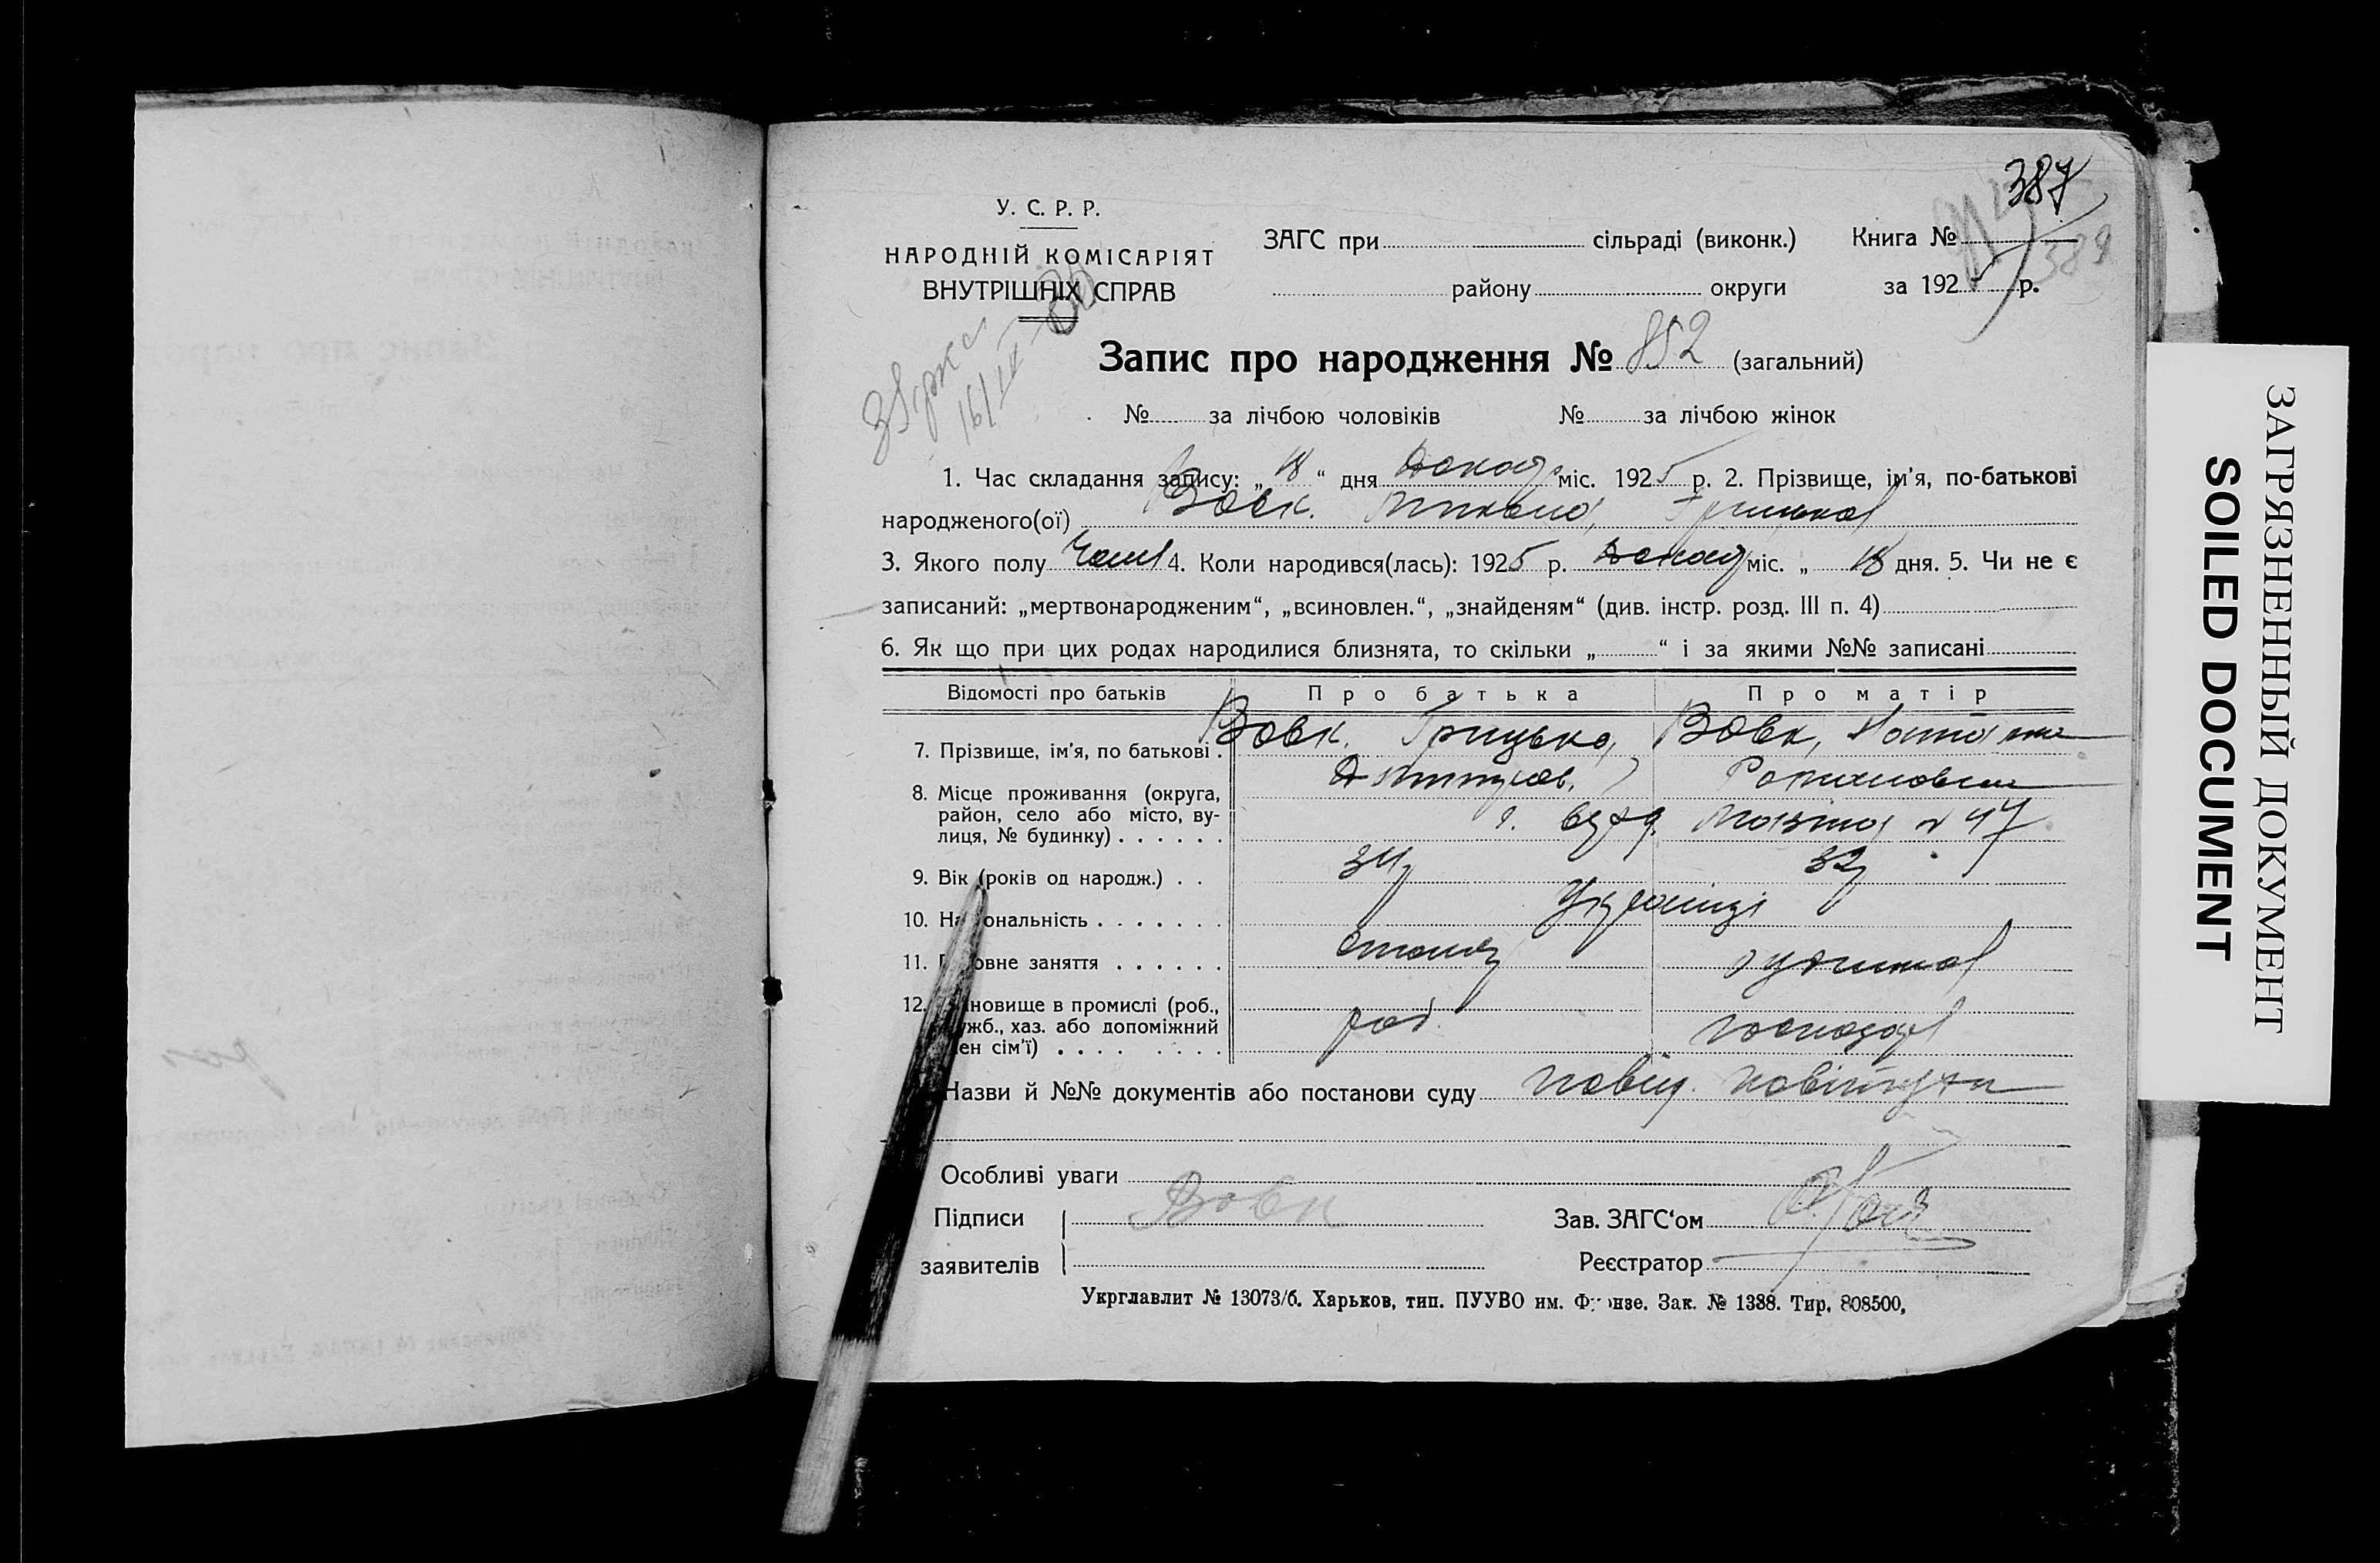 387
389
У. С. Р. Р.
НАРОДНІЙ КОМІСАРІЯТ
ВНУТРІШНІХ СПРАВ
ЗАГС при сільраді (виконк.) Книга №
району округи за 1925 р.
Запис про народження № 852 (загальний)
№ за лічбою чоловіків № за лічбою жінок
1. Час складання запису: „18“ дня міс. 1925 р. 2. Прізвище, ім'я, по-батькові
народженого(ої) Вовк. Микола, Грицьков
3. Якого полу Чолов 4. Коли народився(лась): 1925 р. міс. „ 18 дня. 5. Чи не є
записаний: „мертвонародженим“, „всиновлен.“, „знайденям“ (див. інстр. розд. III п. 4)
6. Як що при цих родах народилися близнята, то скільки „ “ і за якими №№ записані
Відомості про батьків Про батька Про матір
7. Прізвище, ім'я, по батькові . Вовк. Грицько, Вовк,
Романовна
8. Місце проживання (округа,
район, село або місто, ву-
лиця, № будинку) . . . . . . № 47
9. Вік (років од народж.) . . 34 32
10. На ональність . . . . . . . Українці
11. овне заняття . . . . . .
12. новище в промислі (роб.,
ужб., хаз. або допоміжний
ен сім'ї) . . . . . . . . роб.
Назви й №№ документів або постанови суду
Особливі уваги
Підписи Вовк Зав. ЗАГС'ом
заявителів Реєстратор
Укрглавлит № 13073/б. Харьков, тип. ПУУВО им. Ф нзе. Зак. № 1388. Тир. 808500,
ЗАГРЯЗНЕННЫЙ ДОКУМЕНТ
SOILED DOCUMENT